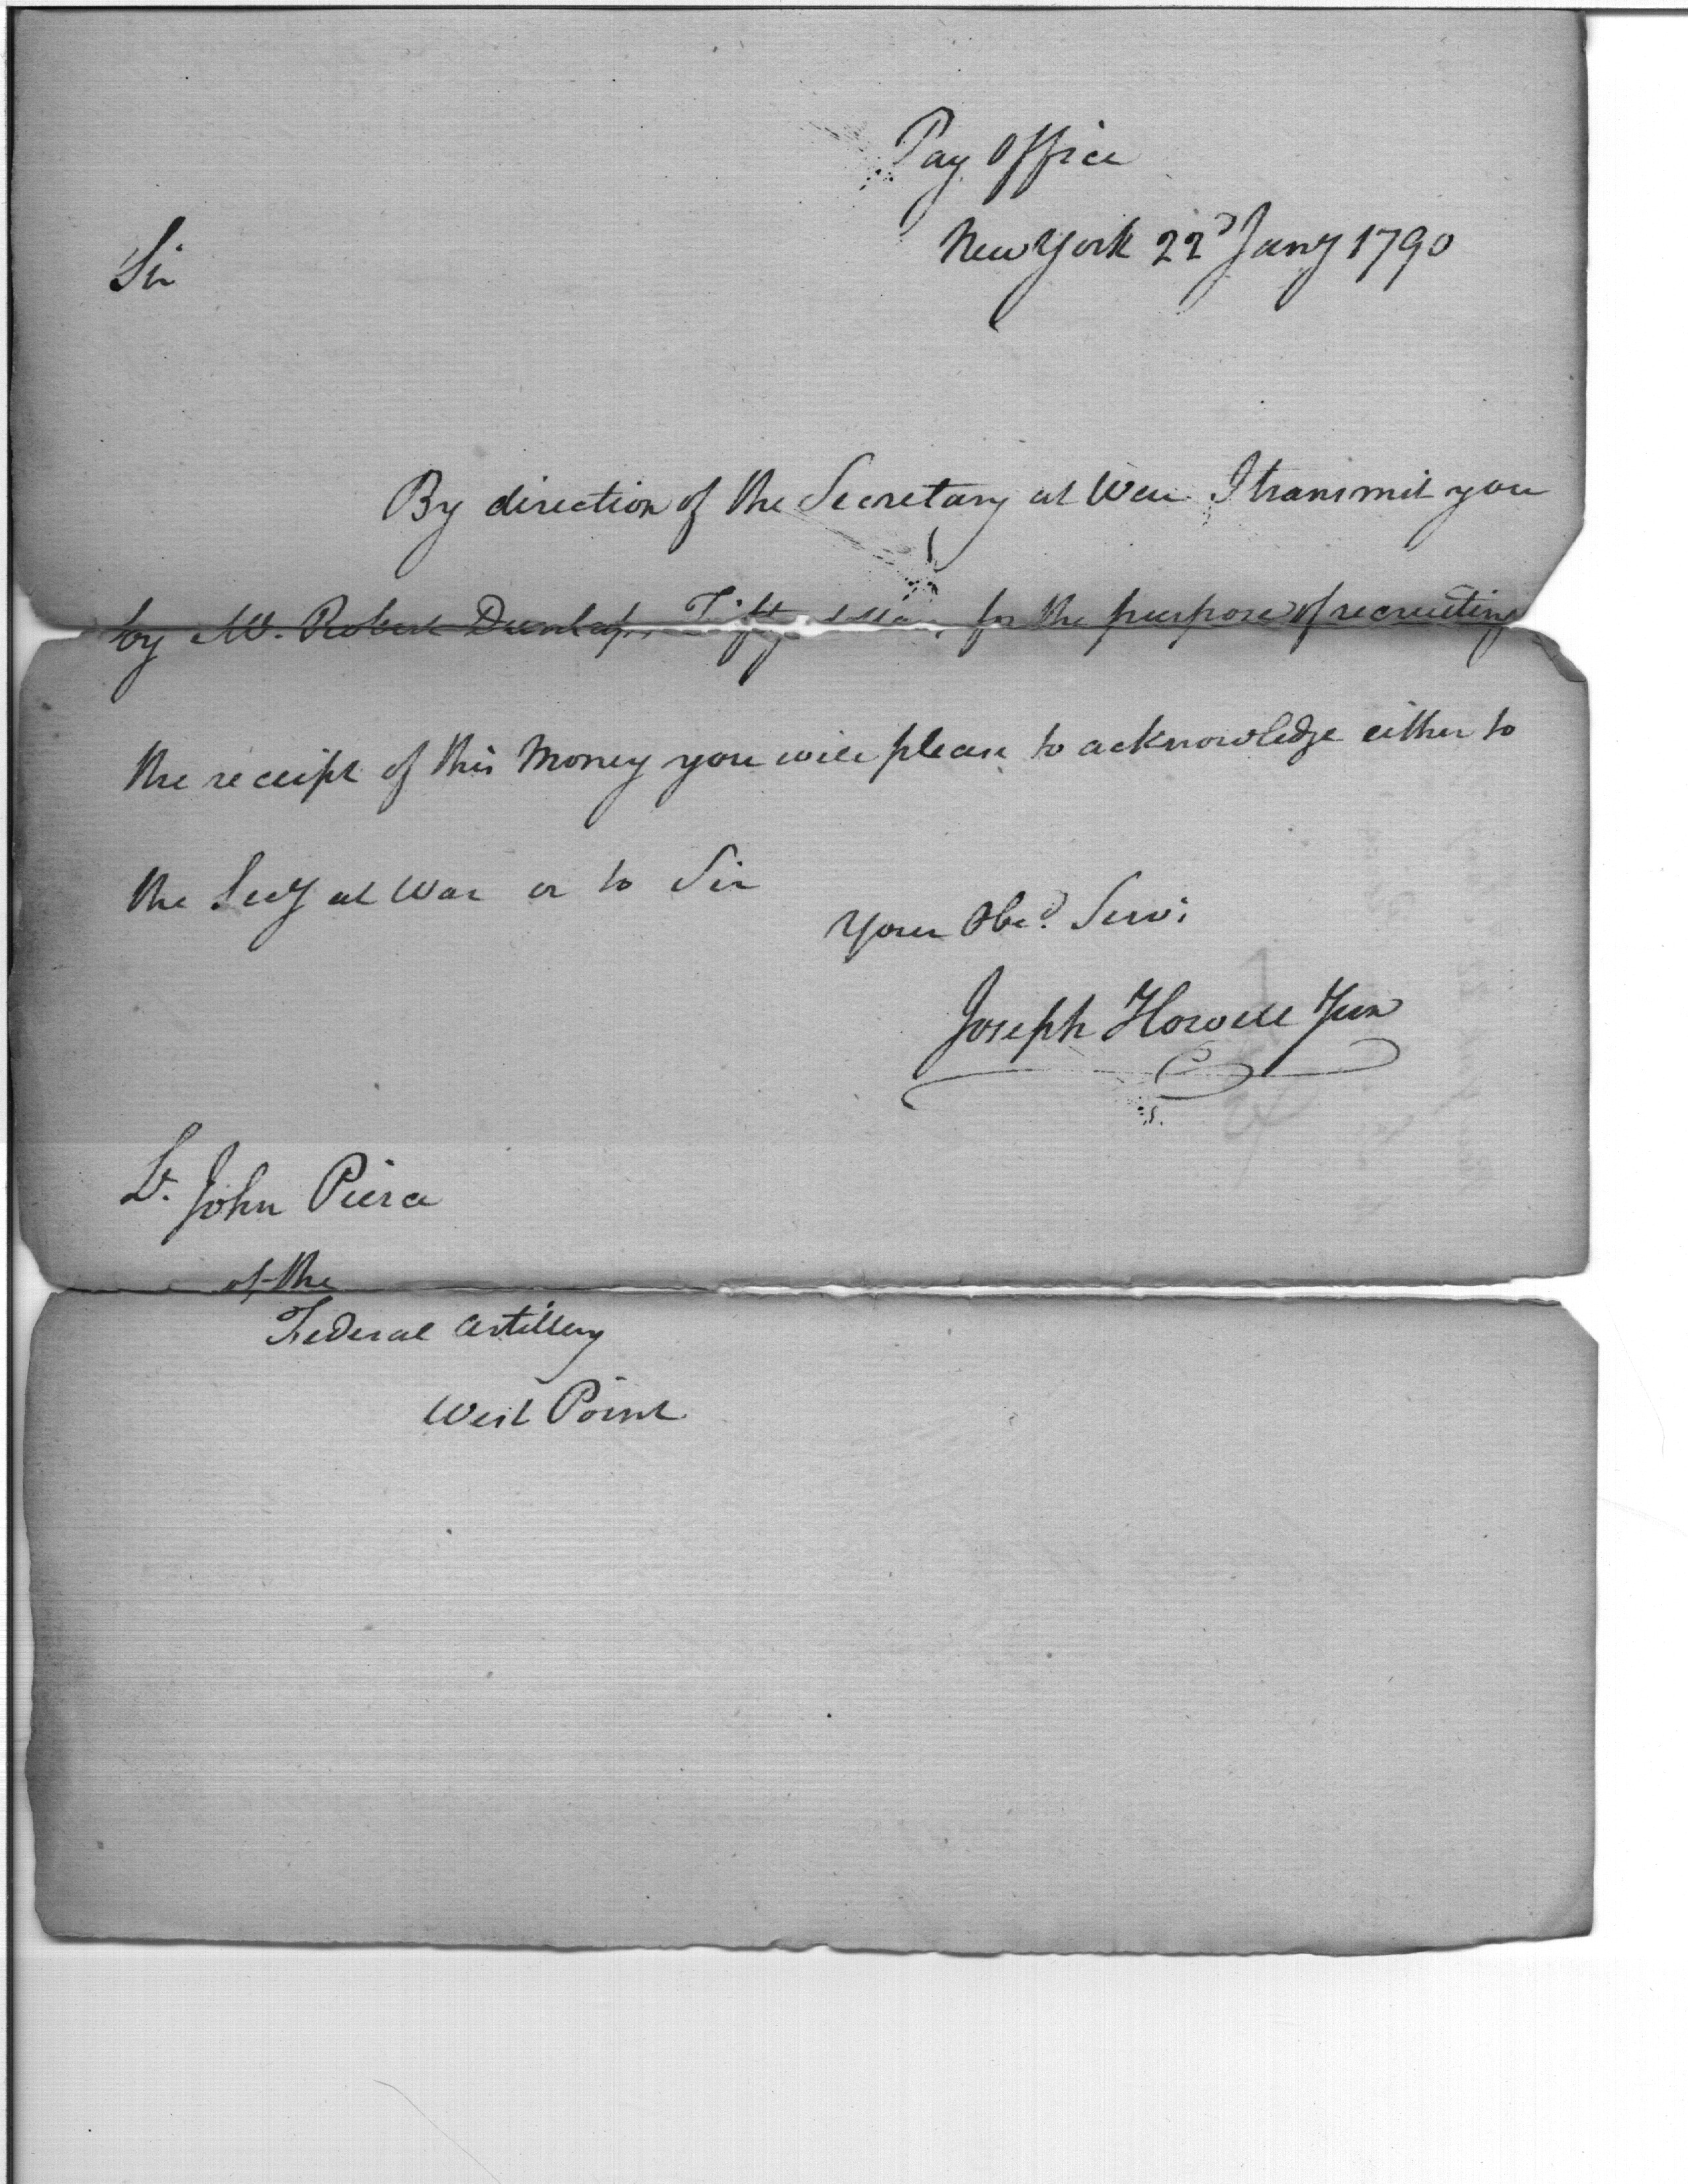 Pay Office
New York 22d Jany 1790
Sir
By direction of the Secretary at War I transmit you
by Mr. Robert Dunlap, Fifty dollars, for the purpose of recruiting
the receipt of this Money you will please to acknowledge either to
the Secy at War or to Sir
Your Obed. Servt
Joseph Howell Jun
Lt. John Pierce
of the
Federal Artillery
West Point